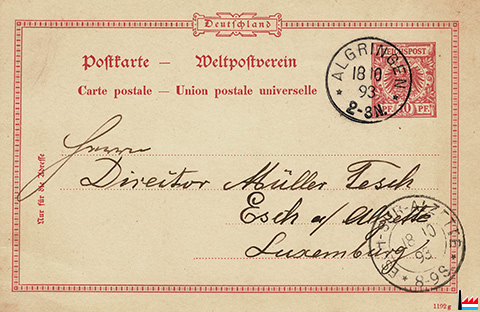 Deutschland
Postkarte — Weltpostverein
Carte postale — Union postale universelle
ALGRINGEN
18 10
93
2-3N.
REICHSPOST
10 PF.
Nur für die Adresse
Herrn
Director Müller Tesch
Esch a/ Alzette
Luxemburg
ESCH-SUR-ALZETTE
18 10
93
8-9S
1192 g